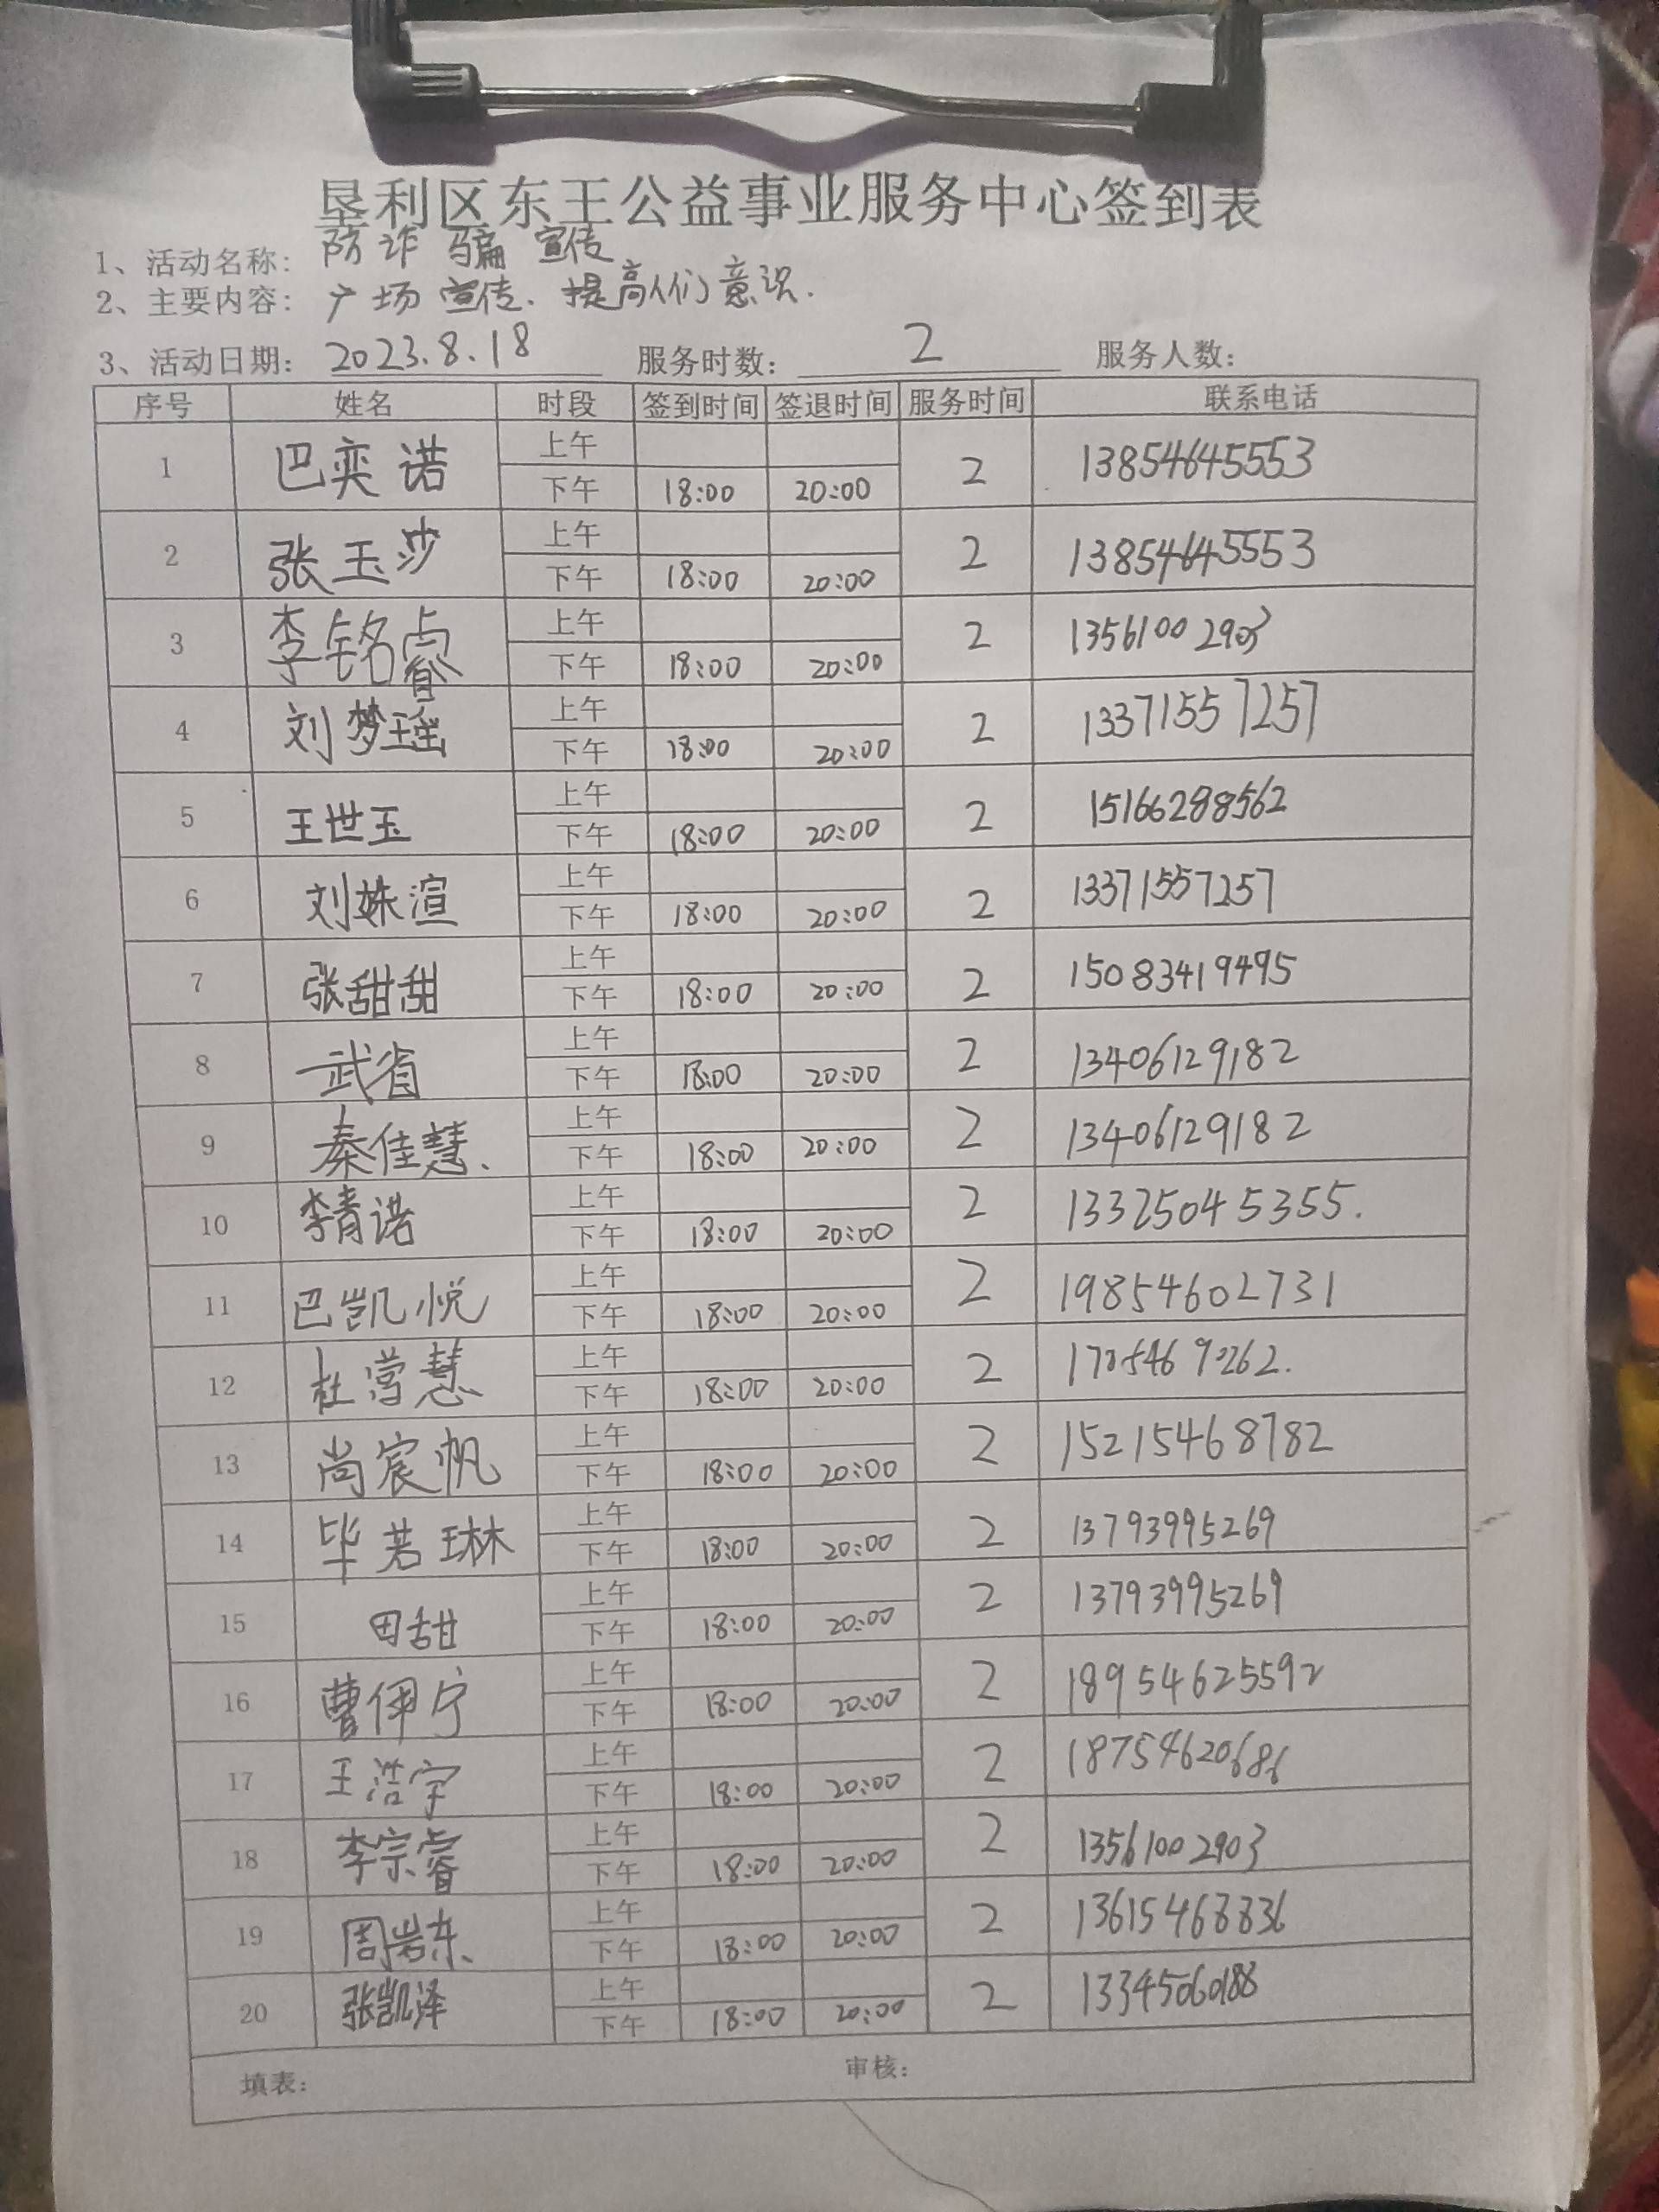 垦利区东王公益事业服务中心签到表
1、活动名称: 防诈骗宣传
2、主要内容: 广场宣传、提高人们意识.
3、活动日期: 2023.8.18 服务时数: 2 服务人数:
序号 姓名 时段 签到时间 签退时间 服务时间 联系电话
1 巴奕诺 上午 2 13854645553
下午 18:00 20:00
2 张玉莎 上午 2 13854645553
下午 18:00 20:00
3 李铭睿 上午 2 13561002903
下午 18:00 20:00
4 刘梦瑶 上午 2 13371557257
下午 18:00 20:00
5 王世玉 上午 2 15166288562
下午 18:00 20:00
6 刘姝渲 上午 2 13371557257
下午 18:00 20:00
7 张甜甜 上午 2 15083419495
下午 18:00 20:00
8 武省 上午 2 13406129182
下午 18:00 20:00
9 秦佳慧、 上午 2 13406129182
下午 18:00 20:00
10 李青诺 上午 2 13325045355.
下午 18:00 20:00
11 巴凯悦 上午 2 19854602731
下午 18:00 20:00
12 杜营慧 上午 2
下午 18:00 20:00
13 尚宸帆 上午 2 15215468782
下午 18:00 20:00
14 毕若琳 上午 2 13793995269
下午 18:00 20:00
15 田甜 上午 2 13793995269
下午 18:00 20:00
16 曹伊宁 上午 2 18954625592
下午 18:00 20:00
17 王浩宇 上午 2 18754620686
下午 18:00 20:00
18 李宗睿 上午 2 13561002903
下午 18:00 20:00
19 周岩东、 上午 2 13615468836
下午 18:00 20:00
20 张凯泽 上午 2 13345060188
下午 18:00 20:00
填表: 审核: